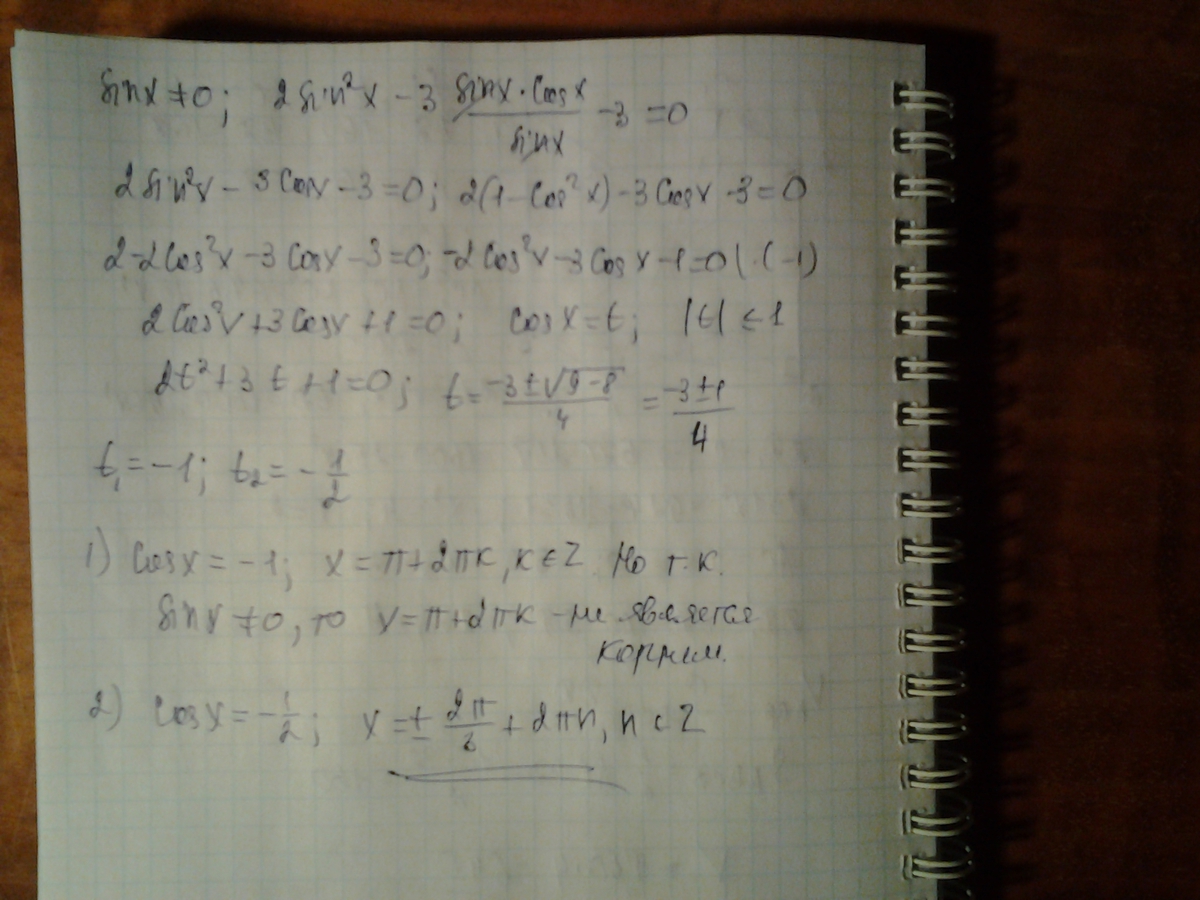 sinx ≠ 0; 2sin²x - 3 (sinx · cosx)/(sinx) - 3 = 0
2sin²x - 3cosx - 3 = 0; 2(1 - cos²x) - 3cosx - 3 = 0
2 - 2cos²x - 3cosx - 3 = 0; -2cos²x - 3cosx - 1 = 0 | · (-1)
2cos²x + 3cosx + 1 = 0; cosx = t; |t| ≤ 1
2t² + 3t + 1 = 0; t = (-3 ± √(9 - 8))/4 = (-3 ± 1)/4
t₁ = -1; t₂ = -1/2
1) cosx = -1; x = π + 2πk, k ∈ Z. Но т.к.
sinx ≠ 0, то x = π + 2πk - не является
корнем.
2) cosx = -1/2; x = ± 2π/3 + 2πn, n ∈ Z